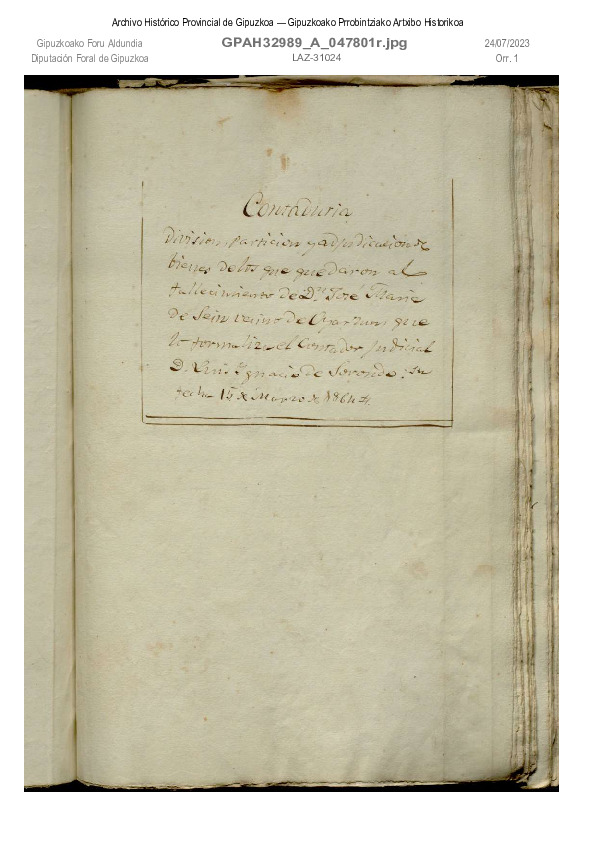 Archivo Histórico Provincial de Gipuzkoa — Gipuzkoako Prrobintziako Artxibo Historikoa
Gipuzkoako Foru Aldundia
Diputación Foral de Gipuzkoa
GPAH32989_A_047801r.jpg
LAZ-31024
24/07/2023
Orr. 1
Contaduria
Division, particion y adjudicacion de
bienes delos que quedaron al
fallecimiento de Dn. José Maria
de Sein vecino de Oyarzun que
lo formaliza el Contador Judicial
D. Luis Ygnacio de Sorondo: su
fecha 15 de Marzo de 1864